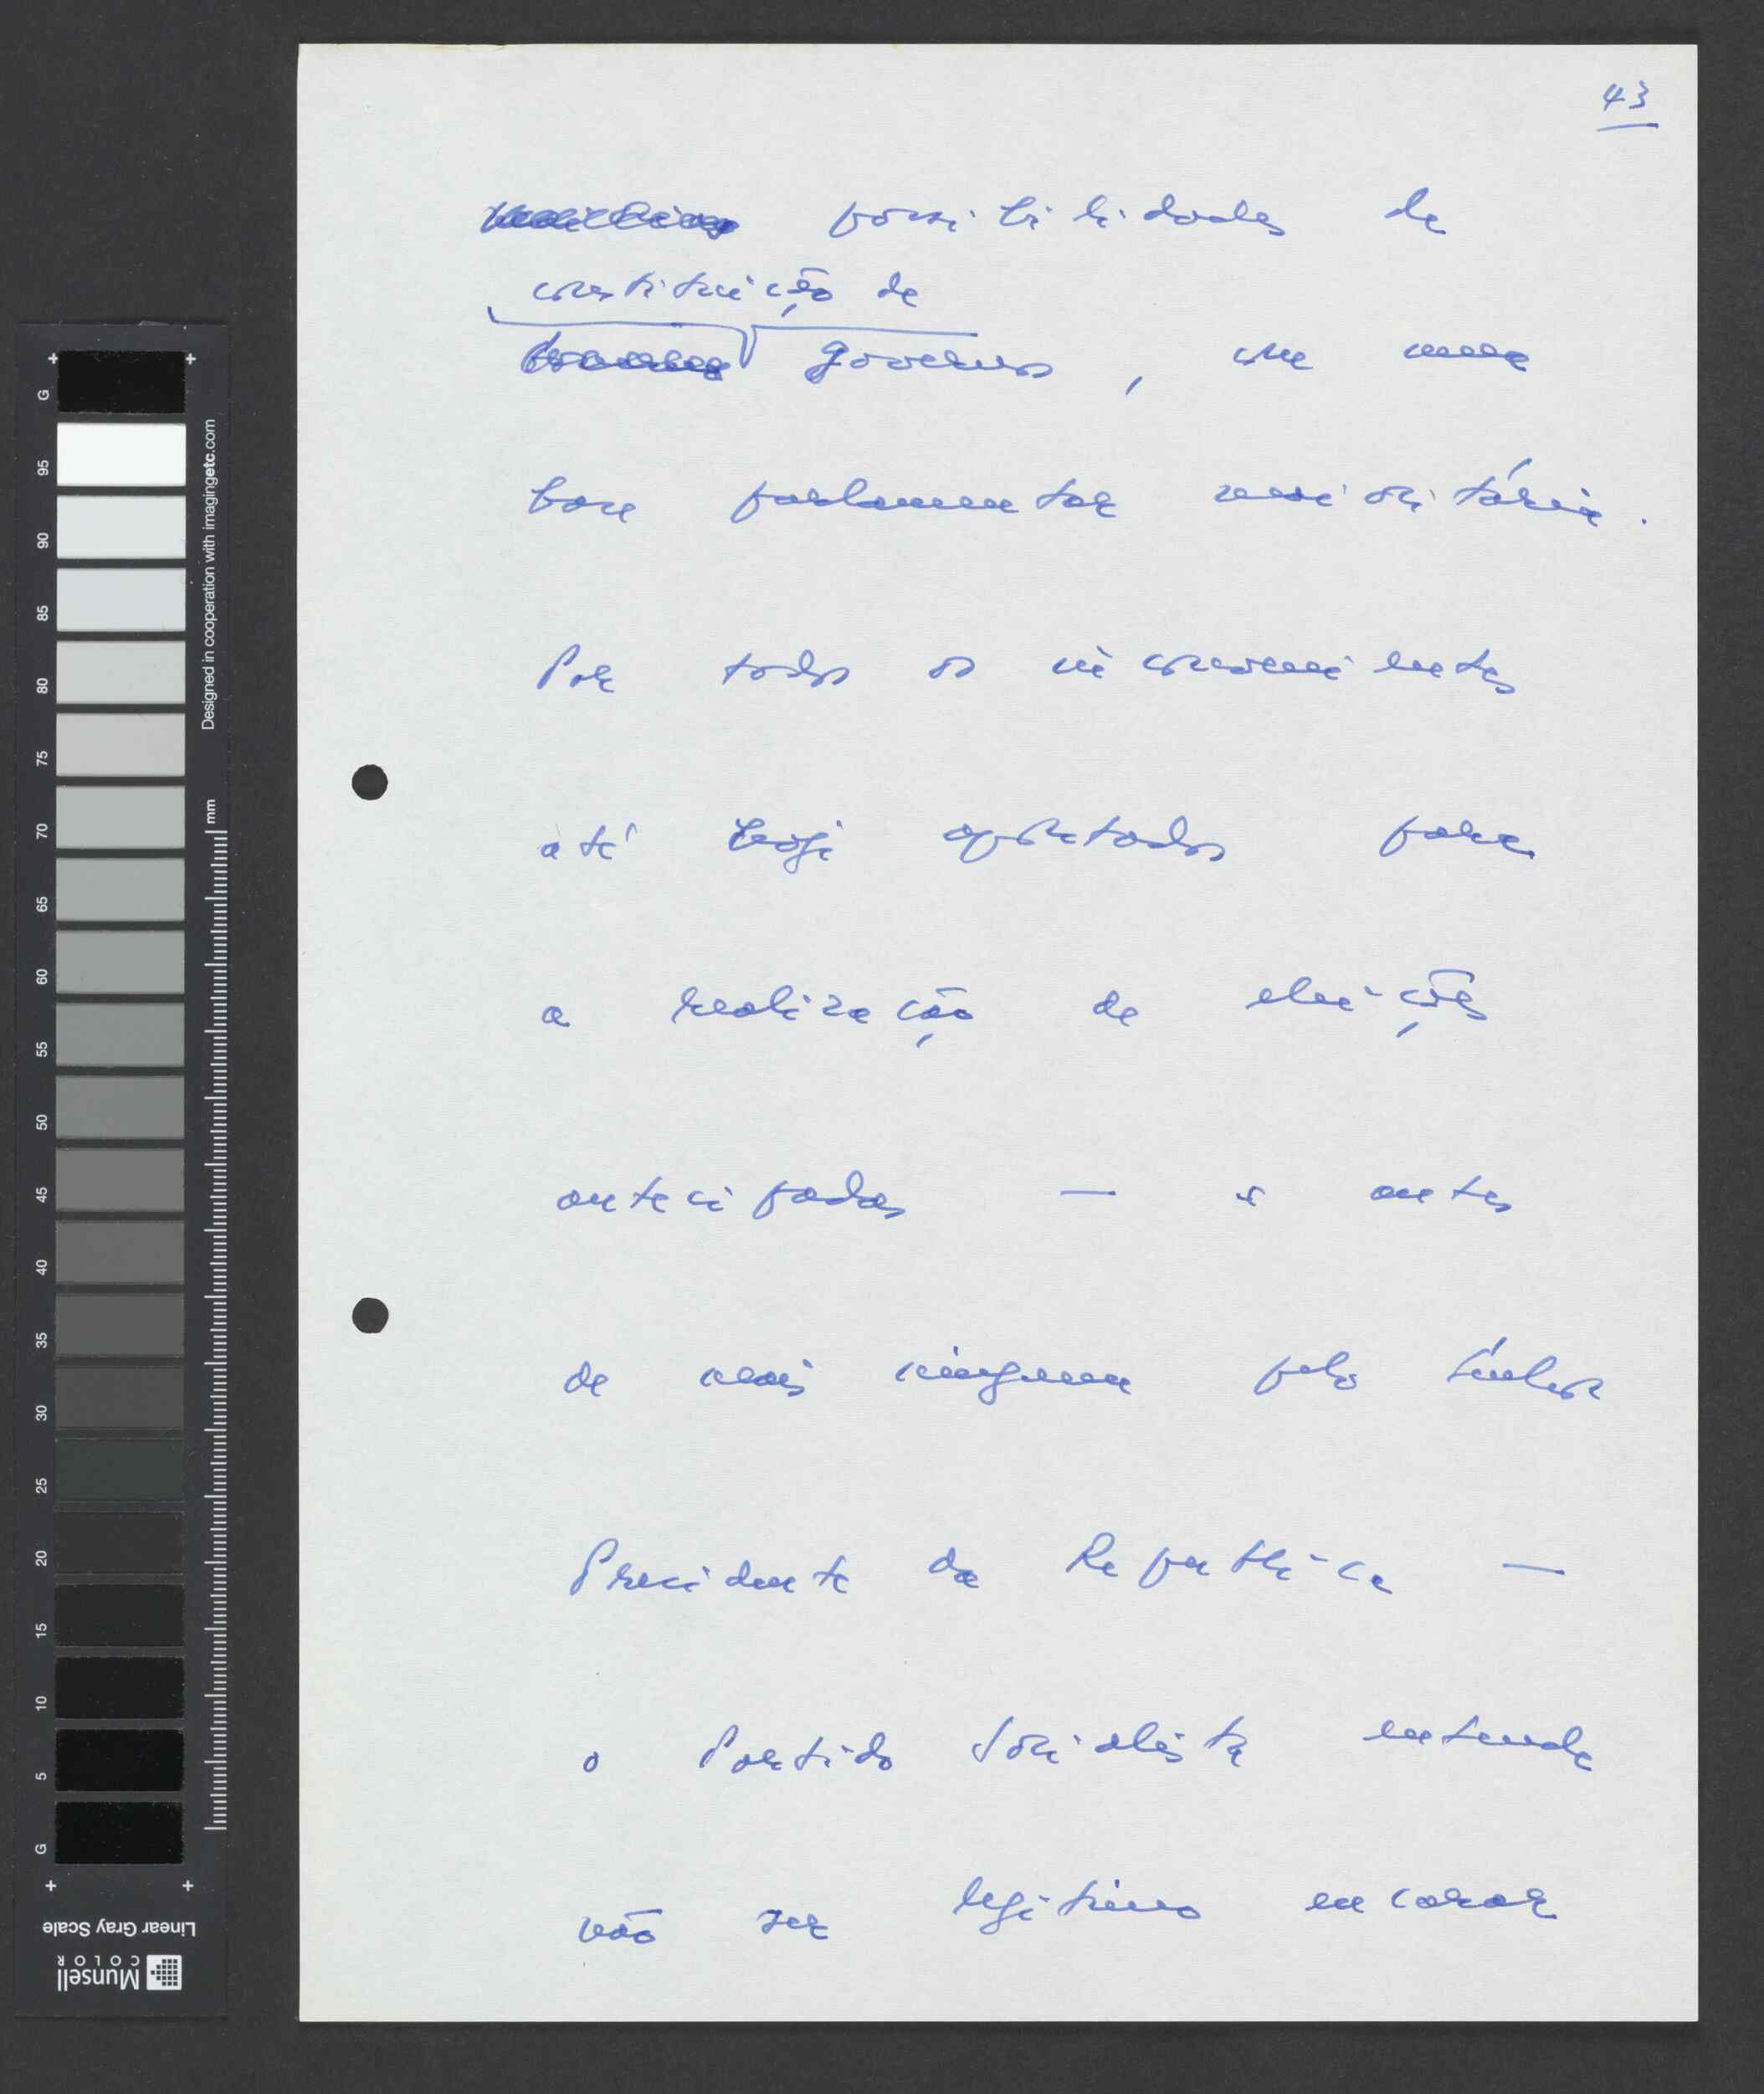 43
possibilidades de
constituição de
Governos, com uma
base parlamentar maioritária.
Por todos os inconvenientes
até hoje apontados para
a realização de eleições
antecipadas — e antes
de mais ninguém pelo Senhor
Presidente da República —
o Partido Socialista entende
não ser legítimo encarar
G
95
90
85
80
75
70
65
60
55
50
45
40
35
30
25
20
15
10
5
G
Designed in cooperation with imagingetc.com
mm
Linear Gray Scale
Munsell
COLOR